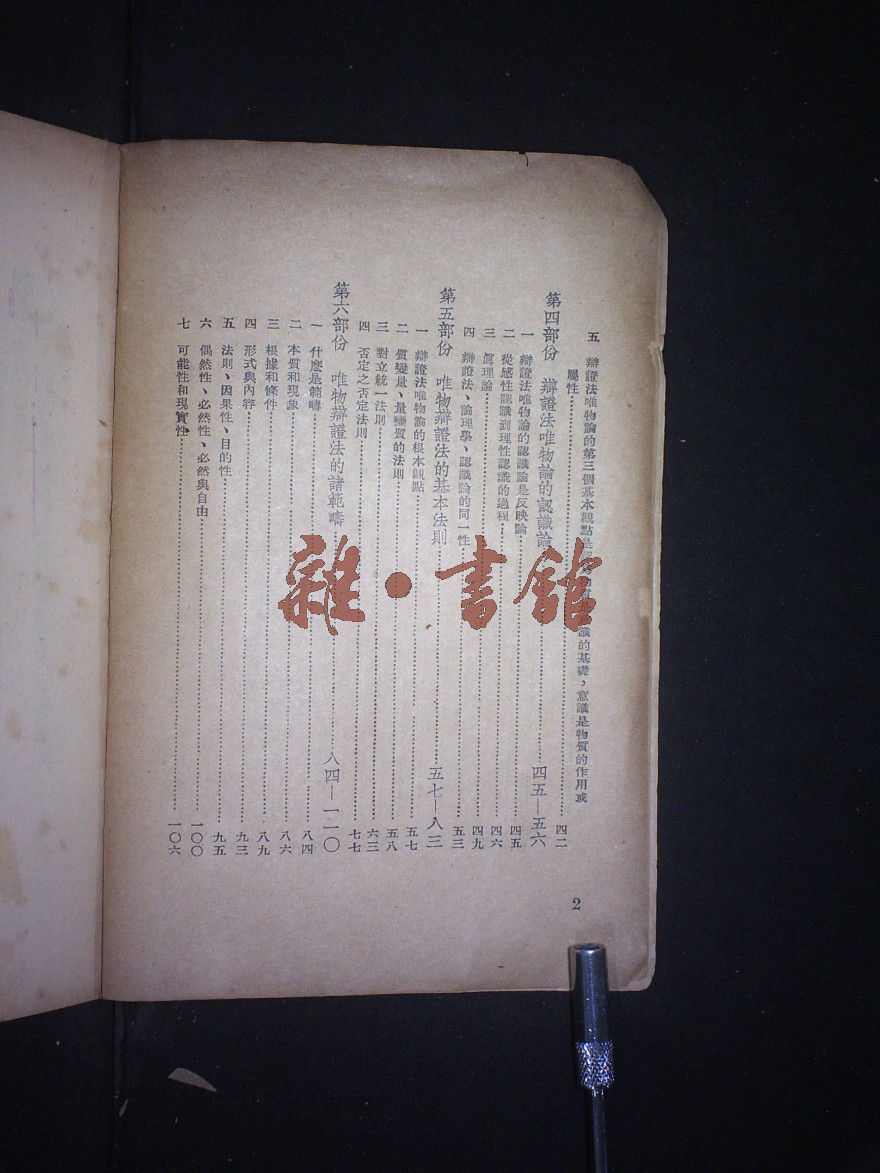 五 辯證法唯物論的第三個基本觀點是 識的基礎，意識是物質的作用或
屬性 四二
第四部份 辯證法唯物論的認識論 四五—五六
一 辯證法唯物論的認識論是反映論 四五
二 從感性認識到理性認識的過程 四六
三 眞理論 四九
四 辯證法、論理學、認識論的同一性 五三
第五部份 唯物辯證法的基本法則 五七—八三
一 辯證法唯物論的根本觀點 五七
二 質變量、量變質的法則 五八
三 對立統一法則 六三
四 否定之否定法則 七七
第六部份 唯物辯證法的諸範疇 八四—一一〇
一 什麼是範疇 八四
二 本質和現象 八六
三 根據和條件 八九
四 形式與內容 九三
五 法則、因果性、目的性 九五
六 偶然性、必然性、必然與自由 一〇〇
七 可能性和現實性 一〇六
2
雜·書館